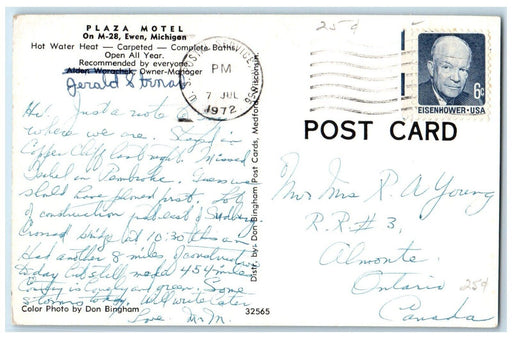 PLAZA MOTEL
On M-28, Ewen, Michigan
Hot Water Heat — Carpeted — Complete Baths
Open All Year.
Recommended by everyone.
Alden Worachek, Owner-Manager
Gerald
Hi! Just a note
where we are. Stayed in
Copper Cliff last night. Missed
in Pembroke. Guess we
should have phoned first. Lots
of construction of Sudbury
Crossed bridge at 10:30 this am
Had another 8 miles of construction
today but still made 454 miles
Country is lovely and green. Some
storms today. Will write later
Love. M.
Color Photo by Don Bingham
32565
Distr. by: Don Bingham Post Cards, Medford, Wisconsin
U.S. POSTAL SERVICE
PM
7 JUL
1972
25¢
6c
EISENHOWER·USA
POST CARD
Mr Mrs R A Young
R.R.# 3,
Almonte,
Ontario
Canada
25¢